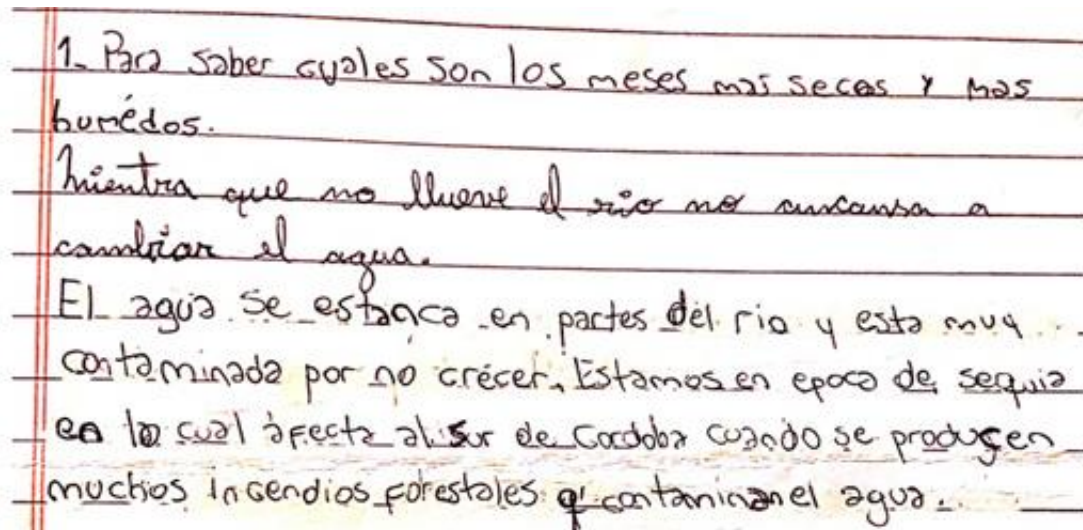 1_ Para saber cuales son los meses mas secos y mas
humédos.
Mientra que no llueve el rio no arcansa a
cambiar el agua.
El agua se estanca en partes del rio y esta muy
contaminada por no crécer. Estamos en epoca de sequia
en la cual afecta al sur de Cordoba cuando se produgen
muchos incendios forestales q' contaminan el agua.